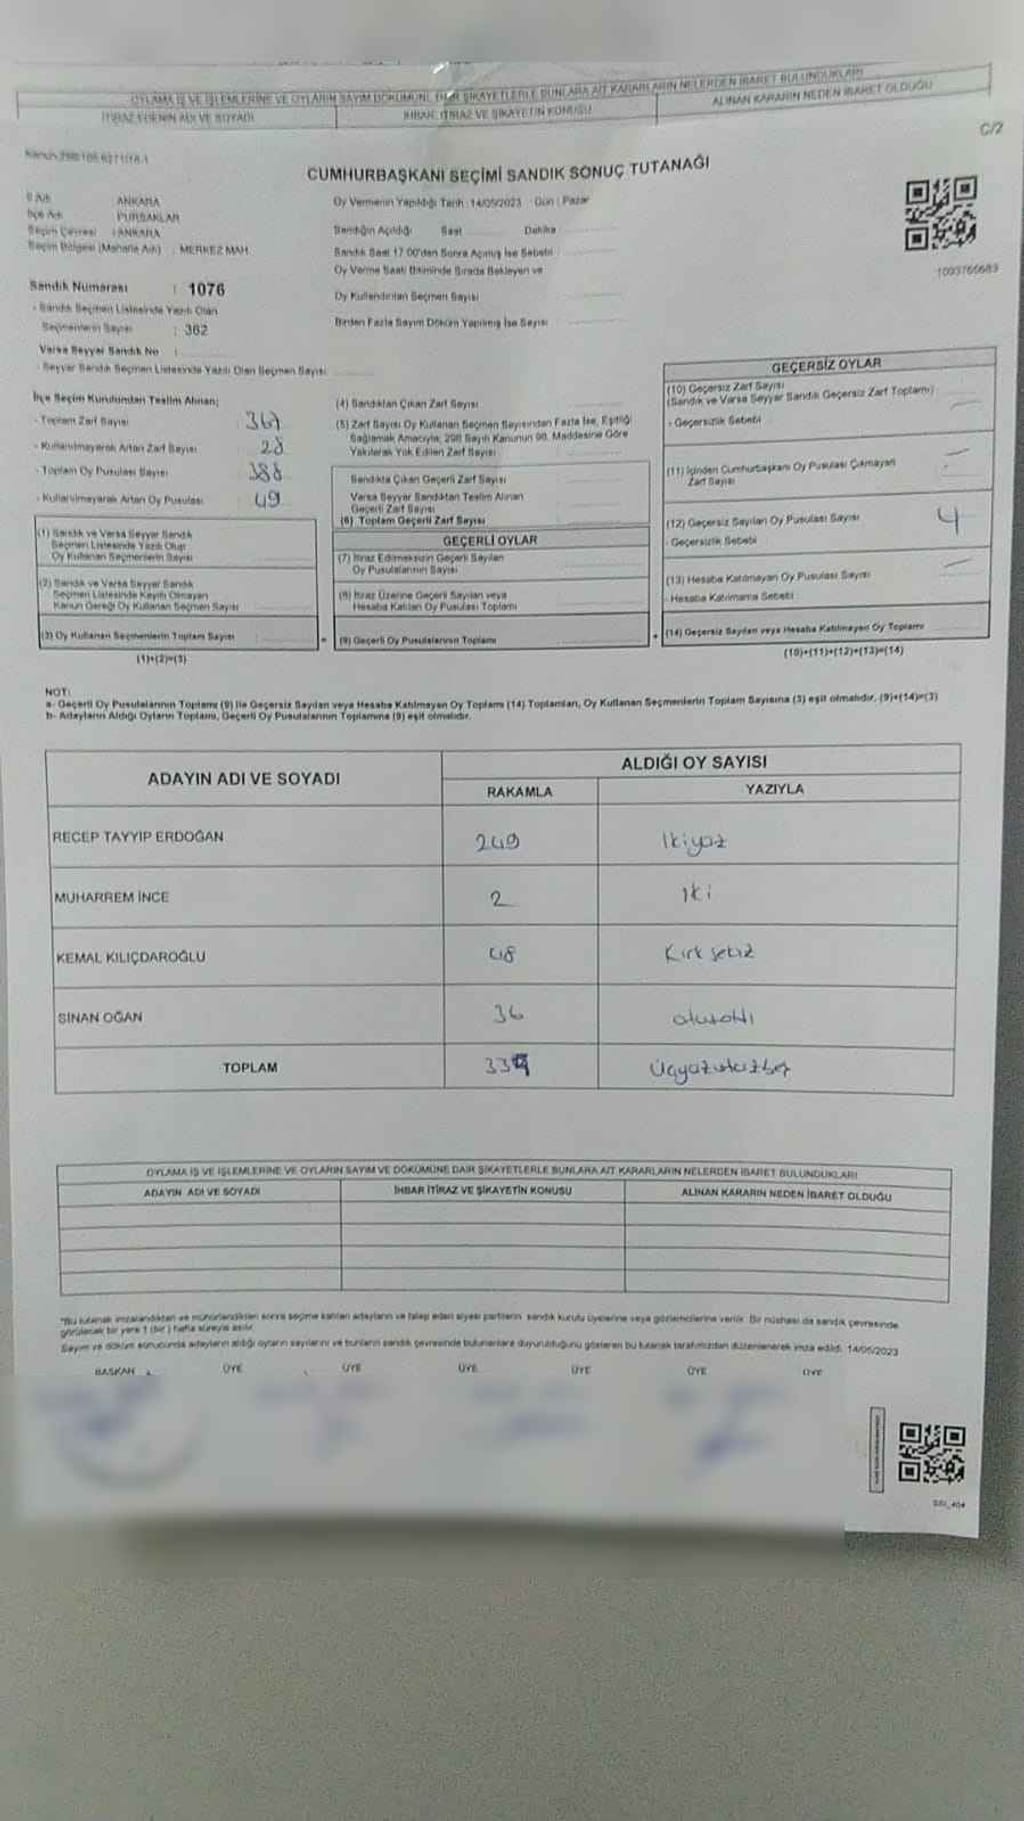 OYLAMA İŞ VE İŞLEMLERİNE VE OYLARIN SAYIM DÖKÜMÜNE DAİR ŞİKAYETLERLE BUNLARA AİT KARARLARIN NELERDEN İBARET BULUNDUKLARI
İTİRAZ EDENİN ADI VE SOYADI
İHBAR, İTİRAZ VE ŞİKAYETİN KONUSU
ALINAN KARARIN NEDEN İBARET OLDUĞU
C/2
CUMHURBAŞKANI SEÇİMİ SANDIK SONUÇ TUTANAĞI
İl Adı : ANKARA
İlçe Adı : PURSAKLAR
Seçim Çevresi : ANKARA
Seçim Bölgesi (Mahalle Adı) : MERKEZ MAH.
Sandık Numarası : 1076
- Sandık Seçmen Listesinde Yazılı Olan
Seçmenlerin Sayısı : 362
Varsa Seyyar Sandık No :
- Seyyar Sandık Seçmen Listesinde Yazılı Olan Seçmen Sayısı
Oy Vermenin Yapıldığı Tarih : 14/05/2023 Gün : Pazar
Sandığın Açıldığı Saat Dakika
Sandık Saat 17:00'den Sonra Açılmış İse Sebebi
Oy Verme Saati Bitiminde Sırada Bekleyen ve
Oy Kullandırılan Seçmen Sayısı
Birden Fazla Sayım Döküm Yapılmış İse Sayısı
1093766683
İlçe Seçim Kurulundan Teslim Alınan;
- Toplam Zarf Sayısı 367
- Kullanılmayarak Artan Zarf Sayısı 28
- Toplam Oy Pusulası Sayısı 388
- Kullanılmayarak Artan Oy Pusulası 49
(1) Sandık ve Varsa Seyyar Sandık
Seçmen Listesinde Yazılı Olup
Oy Kullanan Seçmenlerin Sayısı
(2) Sandık ve Varsa Seyyar Sandık
Seçmen Listesinde Kayıtlı Olmayan
Kanun Gereği Oy Kullanan Seçmen Sayısı
(3) Oy Kullanan Seçmenlerin Toplam Sayısı
(1)+(2)=(3)
(4) Sandıktan Çıkan Zarf Sayısı
(5) Zarf Sayısı Oy Kullanan Seçmen Sayısından Fazla İse, Eşitliği
Sağlamak Amacıyla, 298 Sayılı Kanunun 98. Maddesine Göre
Yakılarak Yok Edilen Zarf Sayısı
Sandıkta Çıkan Geçerli Zarf Sayısı
Varsa Seyyar Sandıktan Teslim Alınan
Geçerli Zarf Sayısı
(6) Toplam Geçerli Zarf Sayısı
GEÇERLİ OYLAR
(7) İtiraz Edilmeksizin Geçerli Sayılan
Oy Pusulalarının Sayısı
(8) İtiraz Üzerine Geçerli Sayılan veya
Hesaba Katılan Oy Pusulası Toplamı
= (9) Geçerli Oy Pusulalarının Toplamı
GEÇERSİZ OYLAR
(10) Geçersiz Zarf Sayısı
(Sandık ve Varsa Seyyar Sandık Geçersiz Zarf Toplamı)
- Geçersizlik Sebebi
(11) İçinden Cumhurbaşkanı Oy Pusulası Çıkmayan
Zarf Sayısı
(12) Geçersiz Sayılan Oy Pusulası Sayısı 4
- Geçersizlik Sebebi
(13) Hesaba Katılmayan Oy Pusulası Sayısı
- Hesaba Katılmama Sebebi
+ (14) Geçersiz Sayılan veya Hesaba Katılmayan Oy Toplamı
(10)+(11)+(12)+(13)=(14)
NOT:
a- Geçerli Oy Pusulalarının Toplamı (9) ile Geçersiz Sayılan veya Hesaba Katılmayan Oy Toplamı (14) Toplamları, Oy Kullanan Seçmenlerin Toplam Sayısına (3) eşit olmalıdır. (9)+(14)=(3)
b- Adayların Aldığı Oyların Toplamı, Geçerli Oy Pusulalarının Toplamına (9) eşit olmalıdır.
ADAYIN ADI VE SOYADI
ALDIĞI OY SAYISI
RAKAMLA
YAZIYLA
RECEP TAYYİP ERDOĞAN 249 İkiyüz
MUHARREM İNCE 2 iki
KEMAL KILIÇDAROĞLU 48 Kırk sekiz
SİNAN OĞAN 36 otuzaltı
TOPLAM 335 Üçyüzotuzbeş
OYLAMA İŞ VE İŞLEMLERİNE VE OYLARIN SAYIM VE DÖKÜMÜNE DAİR ŞİKAYETLERLE BUNLARA AİT KARARLARIN NELERDEN İBARET BULUNDUKLARI
ADAYIN ADI VE SOYADI
İHBAR İTİRAZ VE ŞİKAYETİN KONUSU
ALINAN KARARIN NEDEN İBARET OLDUĞU
*Bu tutanak imzalandıktan ve mühürlendikten sonra seçime katılan adayların ve talep eden siyasi partilerin sandık kurulu üyelerine veya gözlemcilerine verilir. Bir nüshası da sandık çevresinde
görülecek bir yere 1 (bir) hafta süreyle asılır.
Sayım ve döküm sonucunda adayların aldığı oyların sayılarını ve bunların sandık çevresinde bulunanlara duyurulduğunu gösteren bu tutanak tarafımızdan düzenlenerek imza edildi. 14/05/2023
BAŞKAN ÜYE ÜYE ÜYE ÜYE ÜYE ÜYE